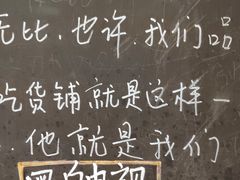 无比.也许.我们品
吃货铺就是这样一
.他就是我们